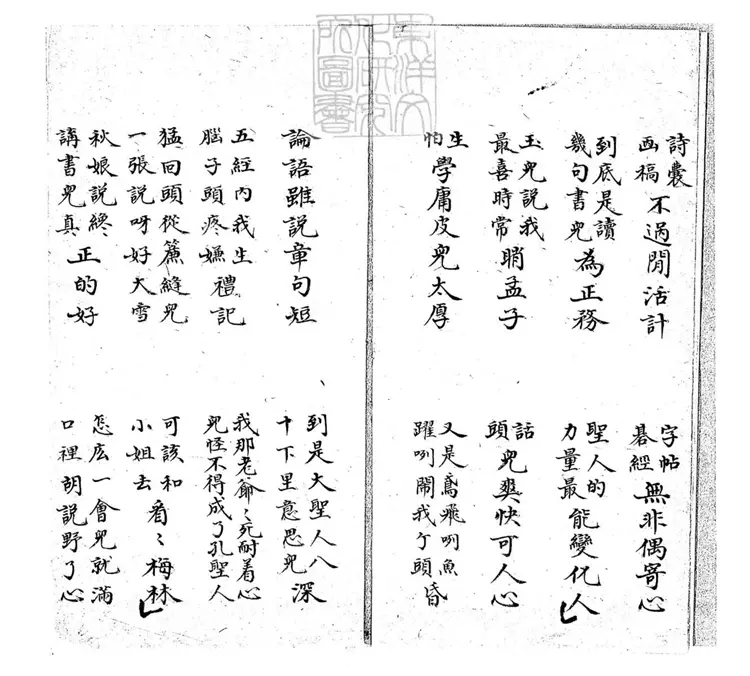 東洋文化研究所圖書
詩囊画稿不過閒活計 字帖碁經無非偶寄心
到底是讀幾句書兒為正務 聖人的力量最能變化人
玉兒說我最喜時常瞧孟子 話頭兒爽快可人心
生怕學庸皮兒太厚 又是鳶飛咧魚躍咧鬧我个頭昏
論語雖說章句短 到是大聖人八十下里意思兒深
五經內我生腦子頭疼嫌禮記 我那老爺〻死耐着心兒怪不得成了孔聖人
猛回頭從簾縫兒一張說呀好大雪 可該和小姐去看〻梅林
秋娘說終〻講書兒真正的好 怎広一會兒就滿口裡胡說野了心